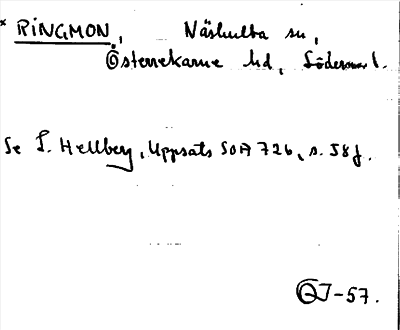 * RINGMON, Näshulta sn,
Österrekarne hd, Söderml.
Se L. Hellberg, Uppsats SOA 726, s. 58 f.
OJ-57.